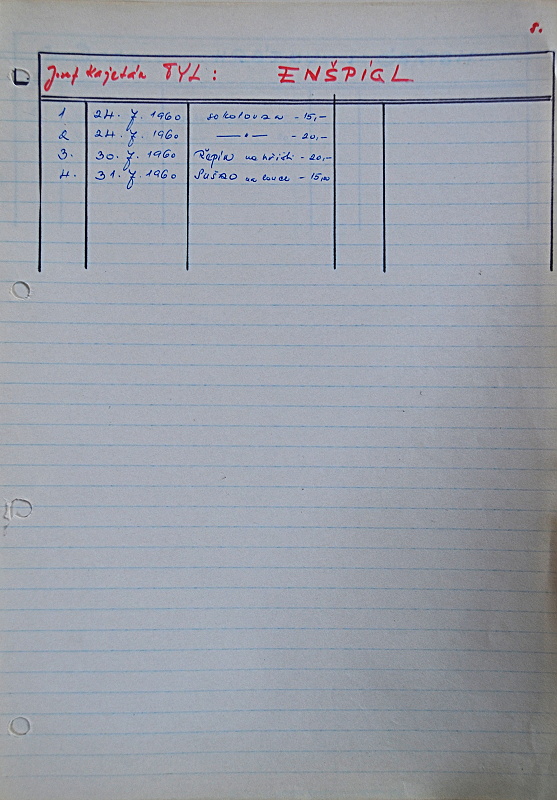 8.
Josef Kajetán TYL: ENŠPÍGL
1 24. 7. 1960 sokolovna - 15,-
2 24. 7. 1960 — " — - 20,-
3. 30. 7. 1960 Řepín na hřišti - 20,-
4. 31. 7. 1960 na louce - 15,00